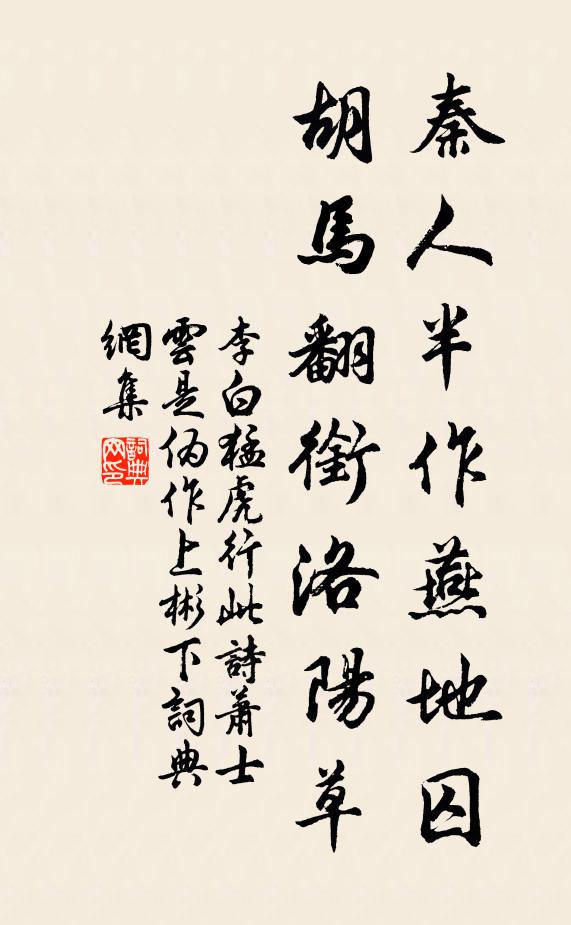 秦人半作燕地囚
胡馬翻銜洛陽草
李白猛虎行此詩蕭士
雲是偽作上彬下詞典
網集
詞典
网印